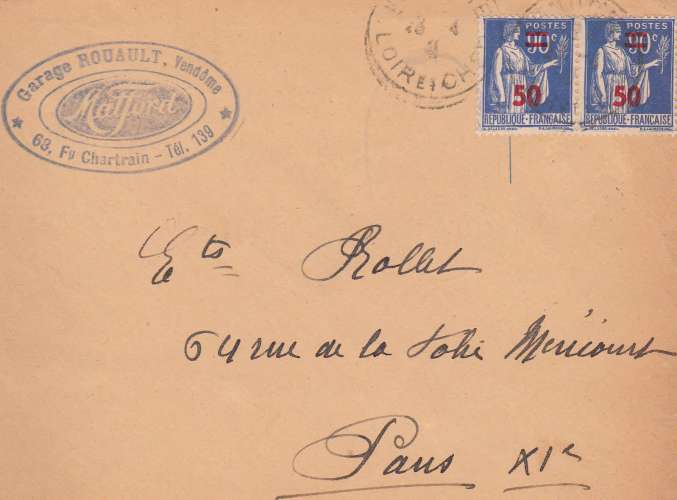 Garage ROUAULT, Vendôme
Matford
63, Fg Chartrain - Tél. 139
LOIR ET CHER
POSTES
90c
50
REPUBLIQUE-FRANÇAISE
POSTES
90c
50
REPUBLIQUE-FRANÇAISE
Ets Rollet
64 rue de la Folie Méricourt
Paris XIe